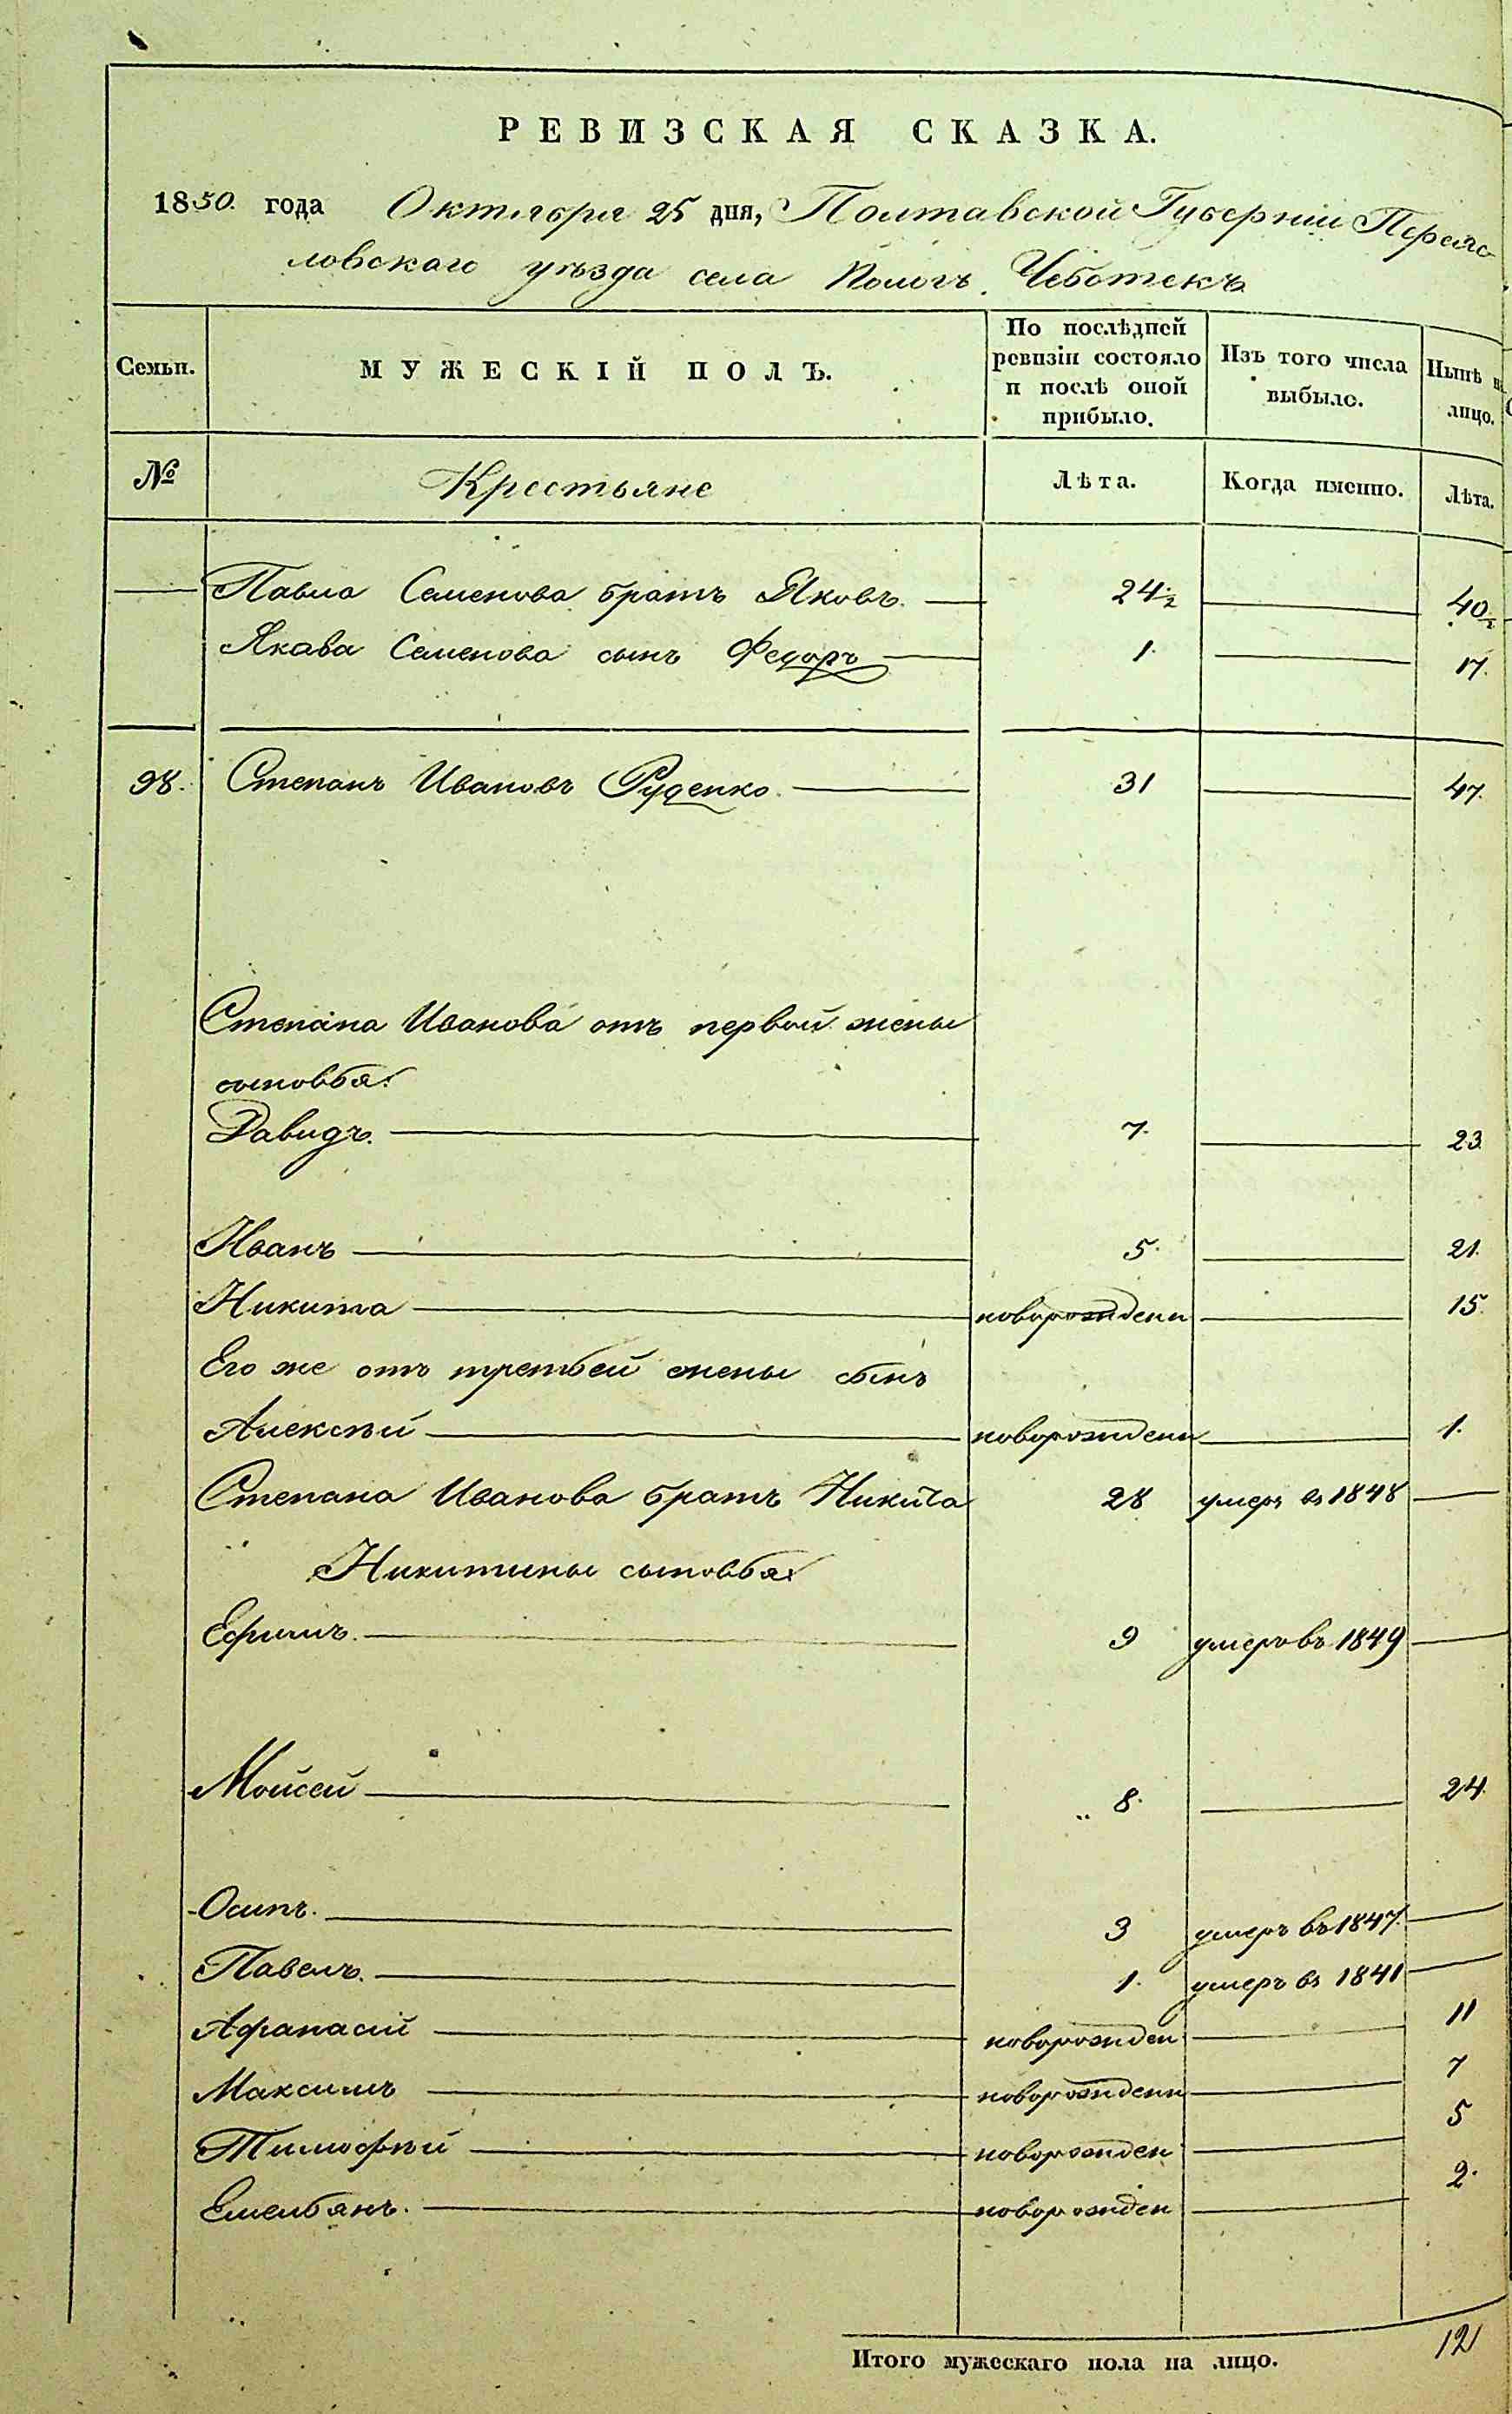 РЕВИЗСКАЯ СКАЗКА.
1850. года Октября 25 дня, Полтавской Губернии Переяс
ловскаго уѣзда села Пологъ Чеботекъ
Семьи. МУЖЕСКІЙ ПОЛЪ. По послѣдней ревизіи состояло и послѣ оной прибыло. Изъ того числа выбыло. Нынѣ на лицо.
№ Крестьяне Лѣта. Когда именно. Лѣта.
Павла Семенова братъ Яковъ. 24½ 40½
Якова Семенова сынъ Федоръ 1. 17.
98. Степанъ Ивановъ Руденко. 31 47.
Степана Иванова отъ первой жены
сыновья:
Давидъ. 7. 23
Иванъ 5. 21.
Никита новорожденн 15.
Его же отъ третьей жены сынъ
Алексѣй новорожденн 1.
Степана Иванова братъ Никита 28 умеръ въ 1848
Никитины сыновья:
Ефимъ. 9 умеръ въ 1849
Мойсей 8. 24.
Осипъ. 3 умеръ въ 1847.
Павелъ. 1. умеръ въ 1841
Афанасій новорожден 11
Максимъ новорожденн 7
Тимофѣй новорожден 5
Емельянъ. новорожден 2.
Итого мужескаго пола на лицо. 12